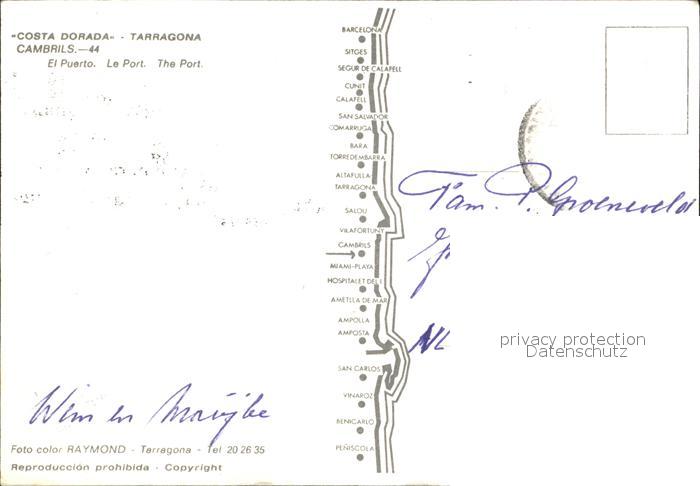 "COSTA DORADA" - TARRAGONA
CAMBRILS.—44
El Puerto. Le Port. The Port.
BARCELONA
SITGES
SEGUR DE CALAFELL
CUNIT
CALAFELL
SAN SALVADOR
COMARRUGA
BARA
TORREDEMBARRA
ALTAFULLA
TARRAGONA
SALOU
VILAFORTUNY
CAMBRILS
MIAMI-PLAYA
HOSPITALET DEL I.
AMETLLA DE MAR
AMPOLLA
AMPOSTA
SAN CARLOS
VINAROZ
BENICARLO
PEÑISCOLA
Fam. P. Groeneveld
NL
privacy protection
Datenschutz
Wim en Marijke
Foto color RAYMOND - Tarragona - Tel 20 26 35
Reproducción prohibida - Copyright